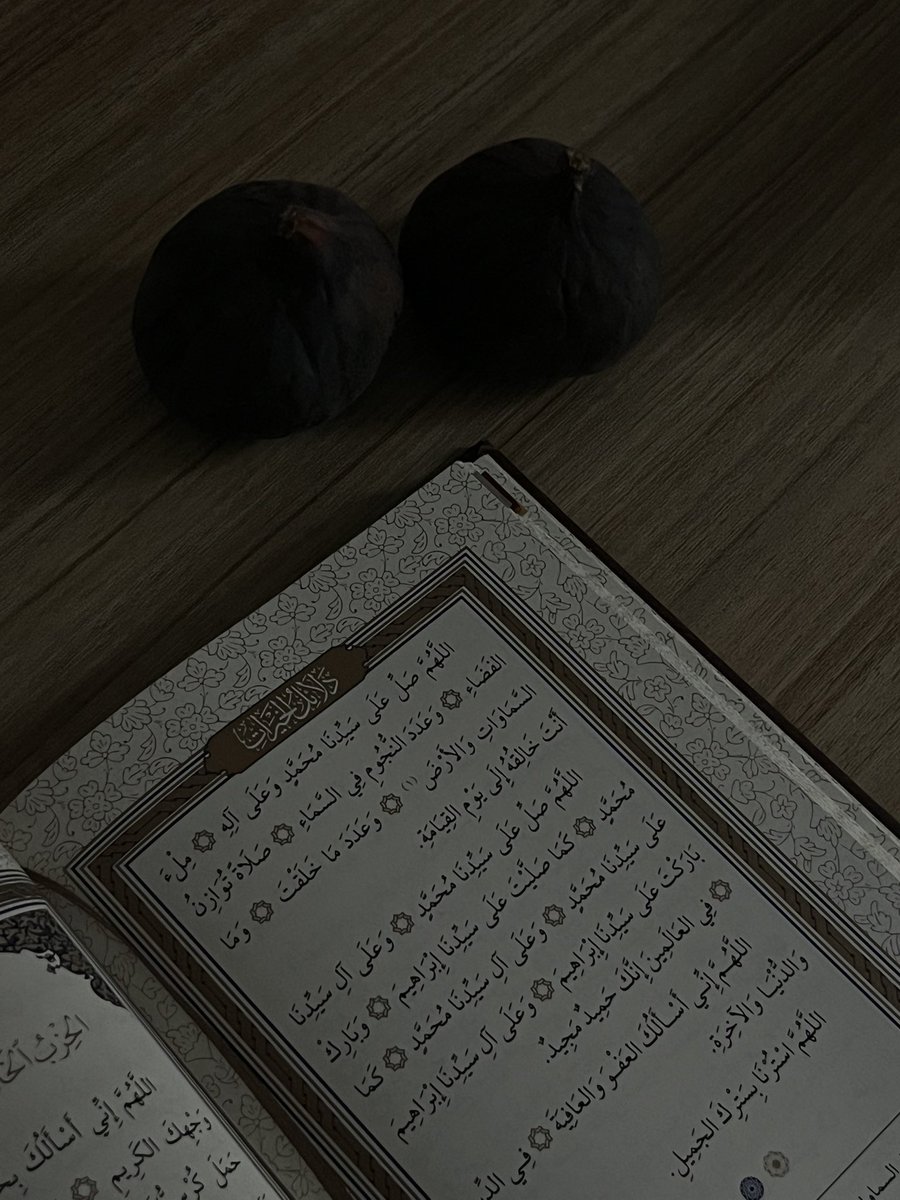 دلائل الخيرات
اللَّهُمَّ صَلِّ عَلَى سَيِّدِنَا مُحَمَّدٍ وَعَلَى آلِهِ ۞ مِلْءَ
الفَضَاءِ ۞ وَعَدَدَ النُّجُومِ فِي السَّمَاءِ ۞ صَلَاةً تُوَازِنُ
السَّمَاوَاتِ وَالأَرْضَ (١) ۞ وَعَدَدَ مَا خَلَقْتَ ۞ وَمَا
أَنْتَ خَالِقُهُ إِلَى يَوْمِ القِيَامَةِ.
اللَّهُمَّ صَلِّ عَلَى سَيِّدِنَا مُحَمَّدٍ ۞ وَعَلَى آلِ سَيِّدِنَا
مُحَمَّدٍ ۞ كَمَا صَلَّيْتَ عَلَى سَيِّدِنَا إِبْرَاهِيمَ ۞ وَبَارِكْ
عَلَى سَيِّدِنَا مُحَمَّدٍ ۞ وَعَلَى آلِ سَيِّدِنَا مُحَمَّدٍ ۞ كَمَا
بَارَكْتَ عَلَى سَيِّدِنَا إِبْرَاهِيمَ ۞ وَعَلَى آلِ سَيِّدِنَا إِبْرَاهِيمَ
۞ فِي العَالَمِينَ إِنَّكَ حَمِيدٌ مَجِيدٌ.
اللَّهُمَّ إِنِّي أَسْأَلُكَ العَفْوَ وَالعَافِيَةَ ۞ فِي
وَالدُّنْيَا وَالآخِرَةِ.
اللَّهُمَّ اسْتُرْنَا بِسَتْرِكَ الجَمِيلِ.
الحِزْبُ
اللَّهُمَّ إِنِّي أَسْأَلُكَ
وَجْهِكَ الكَرِيمِ
حَمَلَ